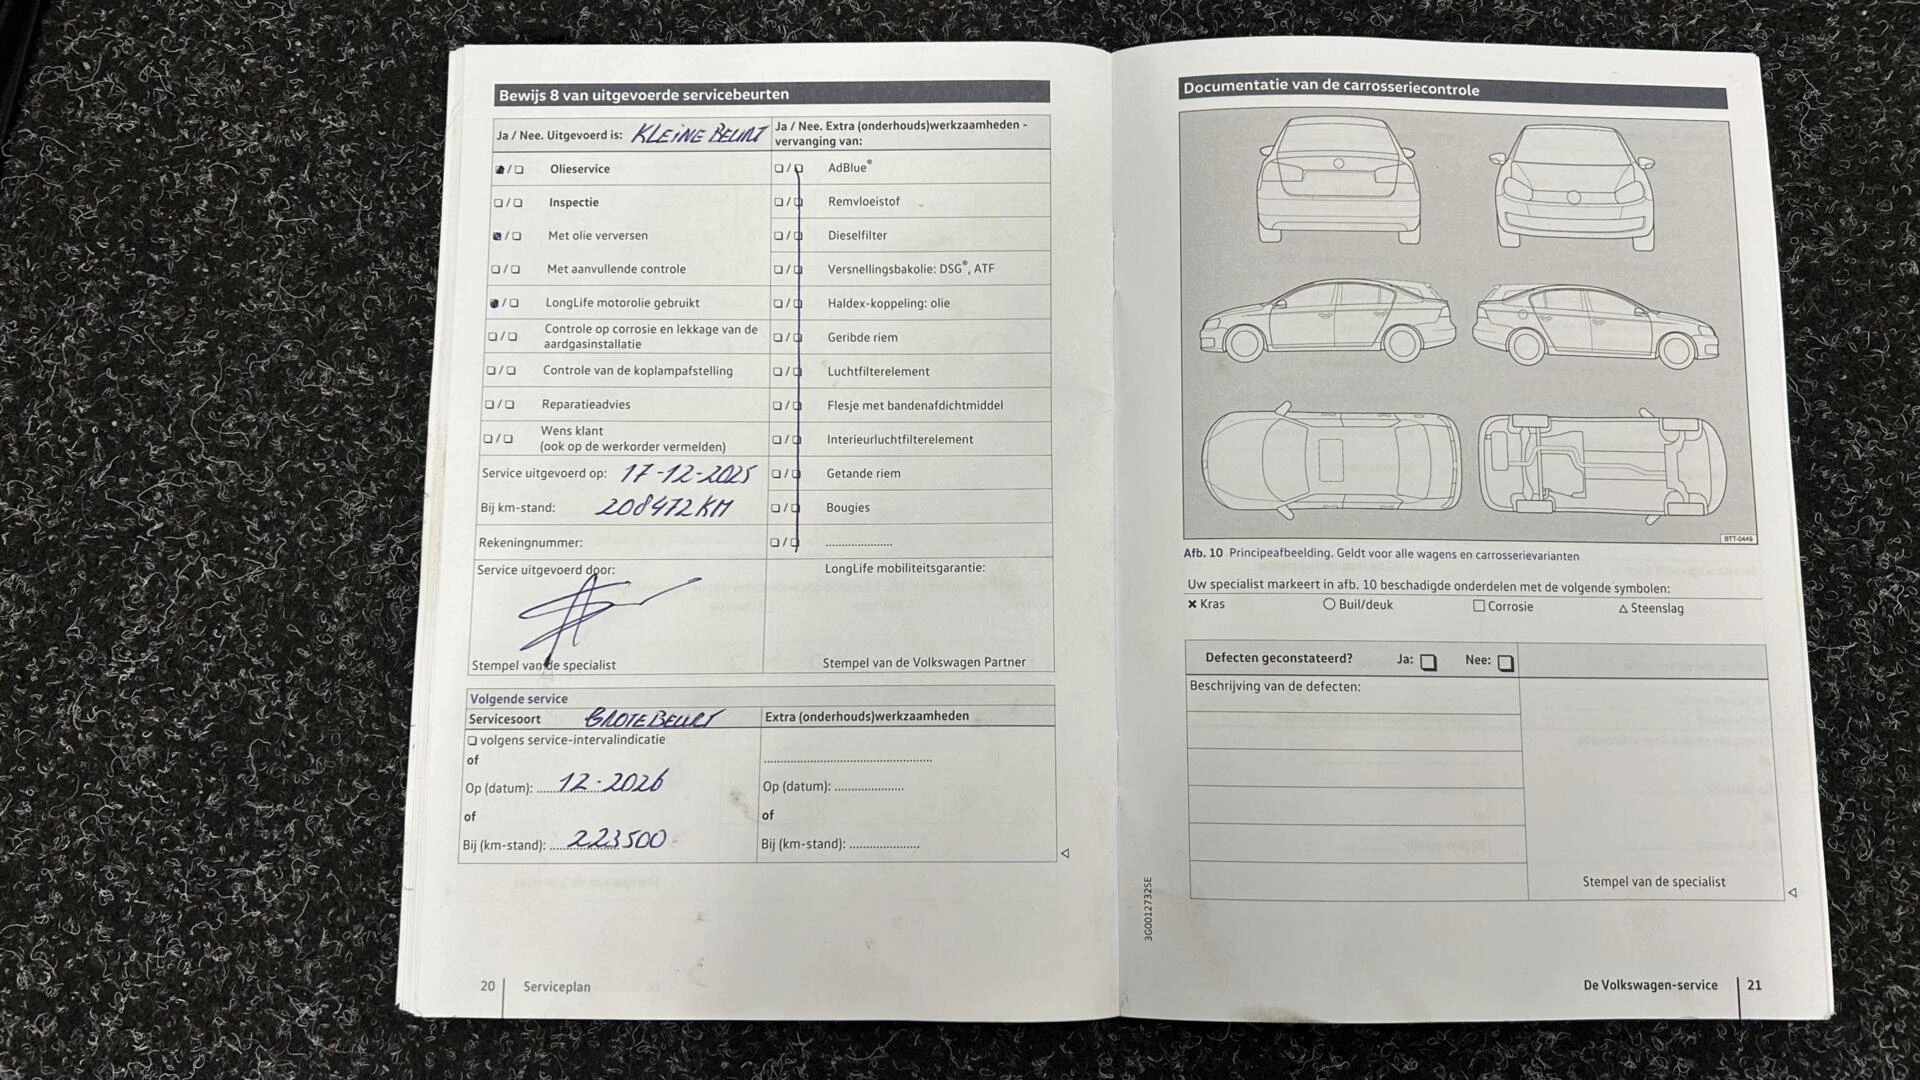 Bewijs 8 van uitgevoerde servicebeurten
Ja / Nee. Uitgevoerd is: KLEINE BEURT
Olieservice
Inspectie
Met olie verversen
Met aanvullende controle
LongLife motorolie gebruikt
Controle op corrosie en lekkage van de
aardgasinstallatie
Controle van de koplampafstelling
Reparatieadvies
Wens klant
(ook op de werkorder vermelden)
Service uitgevoerd op: 17-12-2025
Bij km-stand: 208472 KM
Rekeningnummer:
Service uitgevoerd door:
Stempel van de specialist
Ja / Nee. Extra (onderhouds)werkzaamheden -
vervanging van:
AdBlue®
Remvloeistof
Dieselfilter
Versnellingsbakolie: DSG®, ATF
Haldex-koppeling: olie
Geribde riem
Luchtfilterelement
Flesje met bandenafdichtmiddel
Interieurluchtfilterelement
Getande riem
Bougies
....................
LongLife mobiliteitsgarantie:
Stempel van de Volkswagen Partner
Volgende service
Servicesoort GROTE BEURT
volgens service-intervalindicatie
of
Op (datum): 12-2026
of
Bij (km-stand): 223500
Extra (onderhouds)werkzaamheden
Op (datum): ....................
of
Bij (km-stand): ....................
20 Serviceplan
Documentatie van de carrosseriecontrole
BTT-0449
Afb. 10 Principeafbeelding. Geldt voor alle wagens en carrosserievarianten
Uw specialist markeert in afb. 10 beschadigde onderdelen met de volgende symbolen:
× Kras ○ Buil/deuk □ Corrosie △ Steenslag
Defecten geconstateerd? Ja: Nee:
Beschrijving van de defecten:
Stempel van de specialist
3G0012732SE
De Volkswagen-service 21